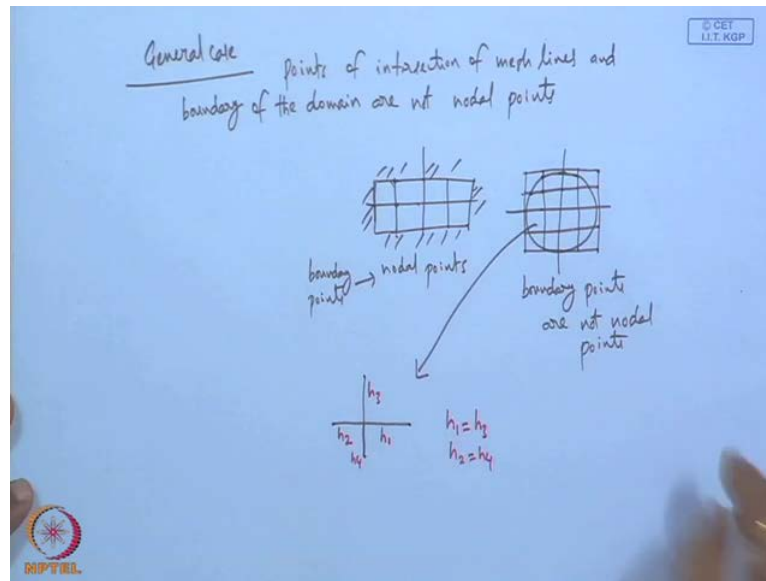 © CET
I.I.T. KGP
General case points of intersection of mesh lines and
boundary of the domain are not nodal points
boundary points → nodal points
boundary points
are not nodal
points
h3
h2 h1
h4
h1 = h3
h2 = h4
NPTEL